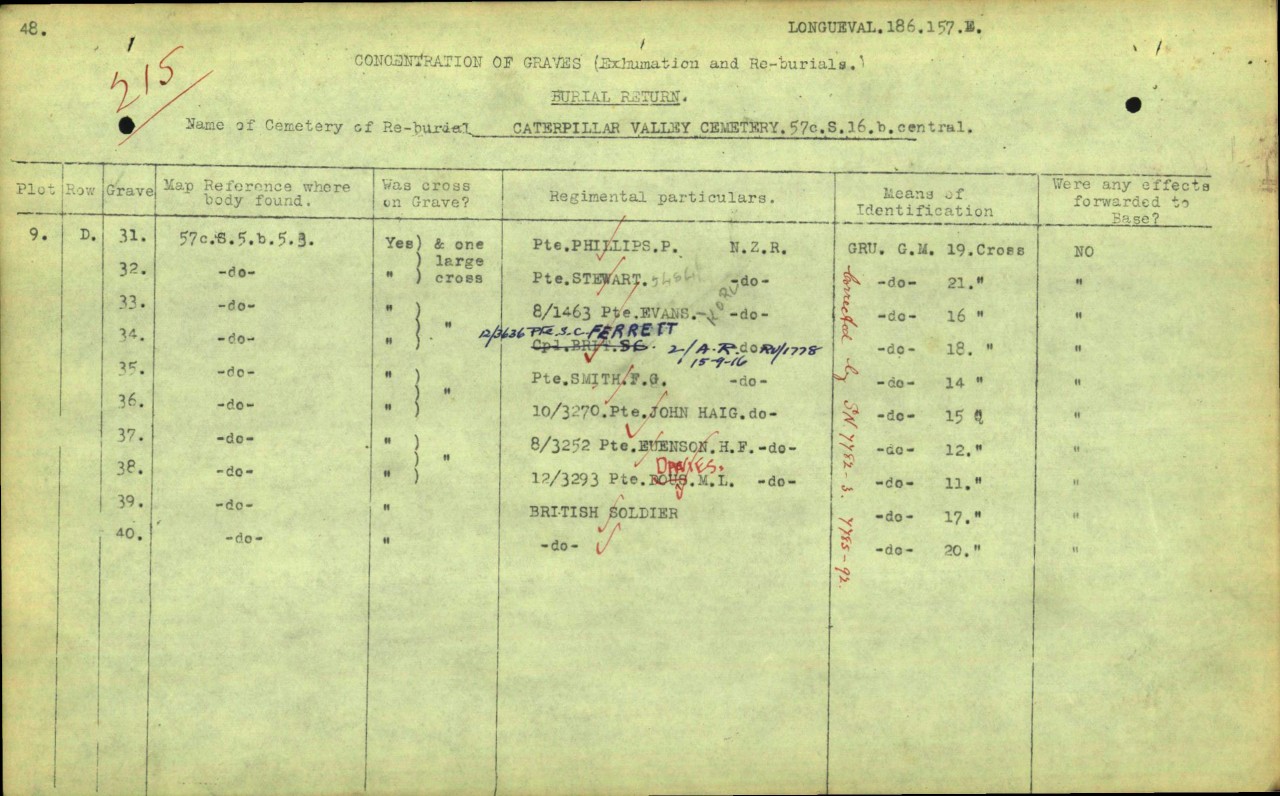 48.
LONGUEVAL.186.157.E.
215
CONCENTRATION OF GRAVES (Exhumation and Re-burials.)
BURIAL RETURN.
Name of Cemetery of Re-burial CATERPILLAR VALLEY CEMETERY.57c.S.16.b.central.
Plot Row Grave Map Reference where body found. Was cross on Grave? Regimental particulars. Means of Identification Were any effects forwarded to Base?
9. D. 31. 57c.S.5.b.5.3. Yes) & one large cross Pte.PHILLIPS.P. N.Z.R. GRU. G.M. 19.Cross NO
32. -do- " ) Pte.STEWART. -do- -do- 21." "
33. -do- " ) " 8/1463 Pte.EVANS. -do- -do- 16 " "
12/3636 Pte. S.C. FERRETT
34. -do- " ) Cpl.BRIT.SG. 2/A.R. do RV/1778 -do- 18. " "
15-9-16
35. -do- " ) " Pte.SMITH.F.G. -do- -do- 14 " "
36. -do- " ) 10/3270.Pte.JOHN HAIG.do- -do- 15 "
37. -do- " ) " 8/3252 Pte.EUENSON.H.F.-do- -do- 12." "
DAVIES.
38. -do- " ) 12/3293 Pte.DOUS.M.L. -do- -do- 11." "
39. -do- " BRITISH SOLDIER -do- 17." "
40. -do- " -do- -do- 20." "
Corrected by SN 7782-3 7785-92